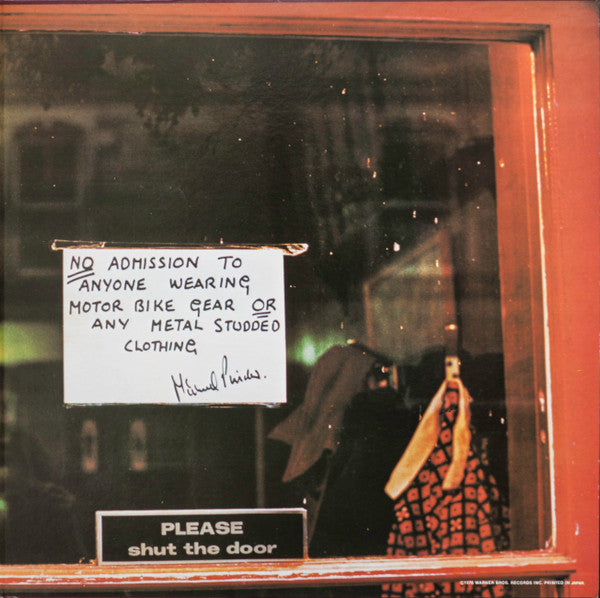 NO ADMISSION TO
ANYONE WEARING
MOTOR BIKE GEAR OR
ANY METAL STUDDED
CLOTHING
PLEASE
shut the door
©1976 WARNER BROS. RECORDS INC. PRINTED IN JAPAN.